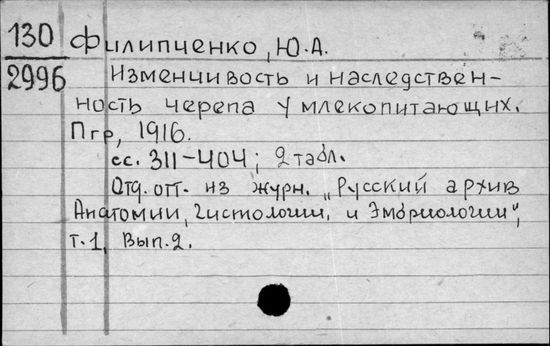 130 Филипченко, Ю.А.
2996 Изменчивость и наследствен-
ность черепа у млекопитающих.
Пгр, 1916.
сс. 311-404; 2 табл.
Отд. отт. из журн. „Русский архив
Анатомии, Гистологии и Эмбриологии",
т.1, Вып.2.